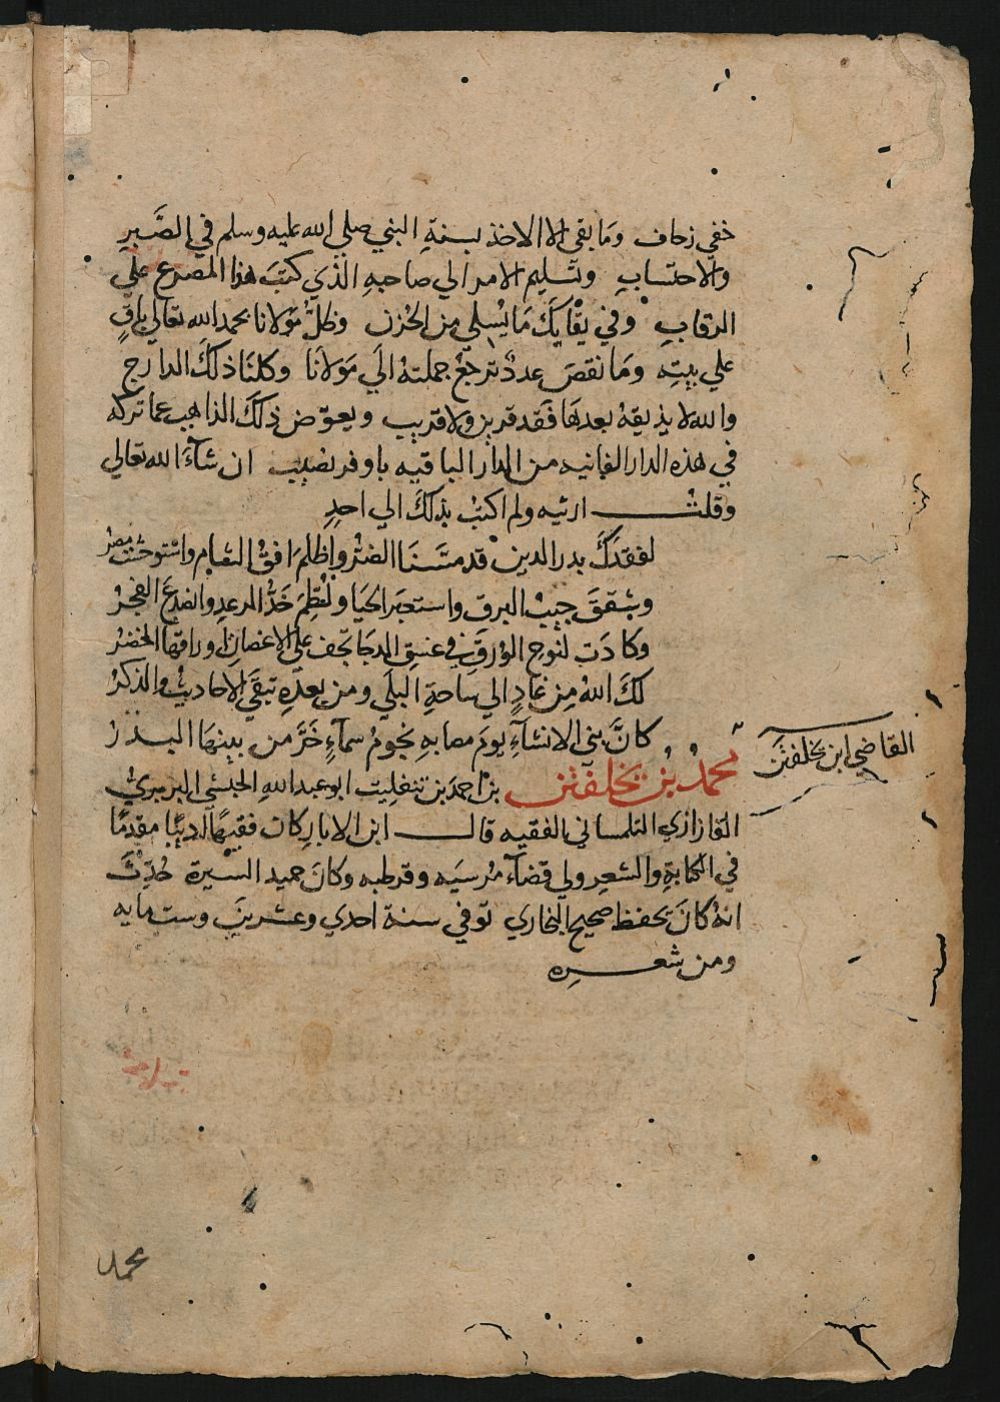 خفي زحاف وما بقي الا الاخذ بسنة النبي صلي الله عليه وسلم في الصَّبرِ
والاحتسابِ وتسليم الامر الي صاحبهِ الذي كتبَ هذا المصرع علي
الرقابِ وفي بقايكَ مَا يُسلي من الحُزن وظلُّ مَولانا بحمد الله تعالي باقٍ
علي بيتِه ومَا نقصَ عددٌ ترجعُ جملتهُ الَي مَولانَا وكلنَا ذلكَ الدارج
والله لا يذيقهُ بعدهَا فَقد قرين ولا قريب ويعوّض ذلكَ الذاهب عما تركه
في هذه الدار الفانيه من الدار الباقيه باوفر نصيب ان شآءَ الله تعالي
وقلتُ ارثيه ولم اكتبْ بذلكَ الي احدٍ
لفقدكَ بدر الدين قد مسَّنَا الضُّرُّ واظلمَ افقُ الشام واستوحشت مصرُ
وشققَ جيبُ البرق واستعبرَ الحَيا ولُطِّمَ خَدُّ الرعدِ وانصدعَ الفجرُ
وكادَت لنوح الوُرقِ في غسَقِ الدجَا تجف علي الاغصانِ اوراقها الخضرُ
لكَ اللهُ مِن غَادٍ الي سَاحةِ البلَي ومن بعدِهِ تبقَي الاحاديثُ والذكرُ
كانَّ بني الانشآءِ يومَ مصابهِ نجومُ سمآءٍ خَرَّ من بينهَا البدرُ
محمدُ بن يخلفتن بن احمدَ بن تنفليت ابو عبد اللهِ الجنشي البربريُّ
القاضي ابن يخلفتَن
الفازازي التلمساني الفقيه قال ابن الابار كان فقيهًا اديبًا مقدمًا
في الكتابةِ والشعرِ ولي قضآءَ مُرسيَه وقرطبه وكانَ حميد السّيرة حُدِّثتُ
انهُ كانَ يحفظ صحيح البخاري توفي سنة احدي وعشرينَ وستمايه
ومن شعرِه
محمد